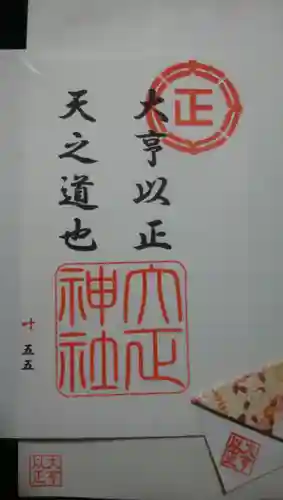 正
大亨以正
天之道也
大正
神社
十 五五
大亨
以正
大亨
以正